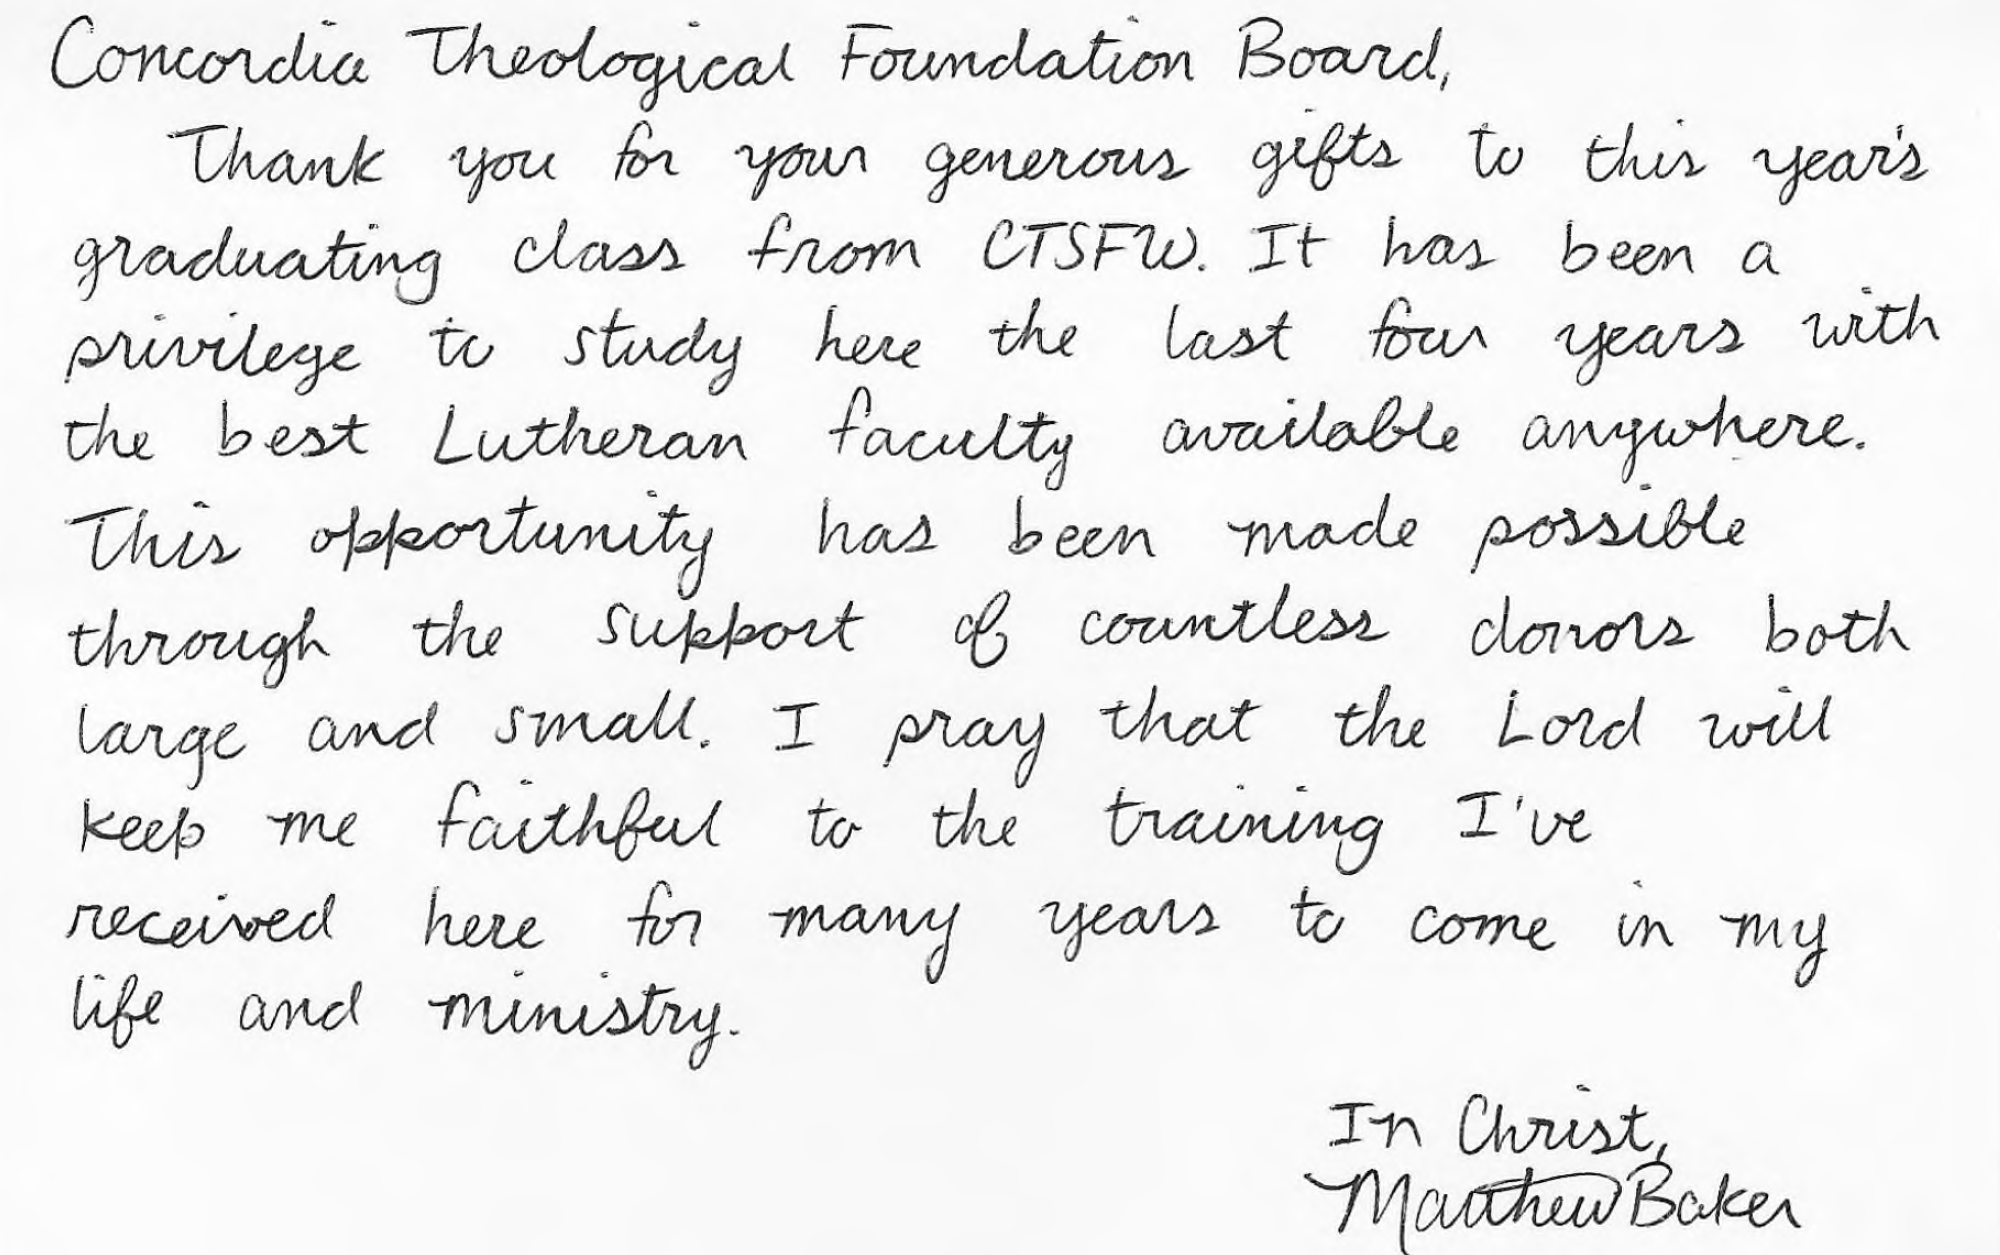 Concordia Theological Foundation Board,
Thank you for your generous gifts to this year's
graduating class from CTSFW. It has been a
privilege to study here the last four years with
the best Lutheran faculty available anywhere.
This opportunity has been made possible
through the support of countless donors both
large and small. I pray that the Lord will
keep me faithful to the training I've
received here for many years to come in my
life and ministry.
In Christ,
Matthew Baker